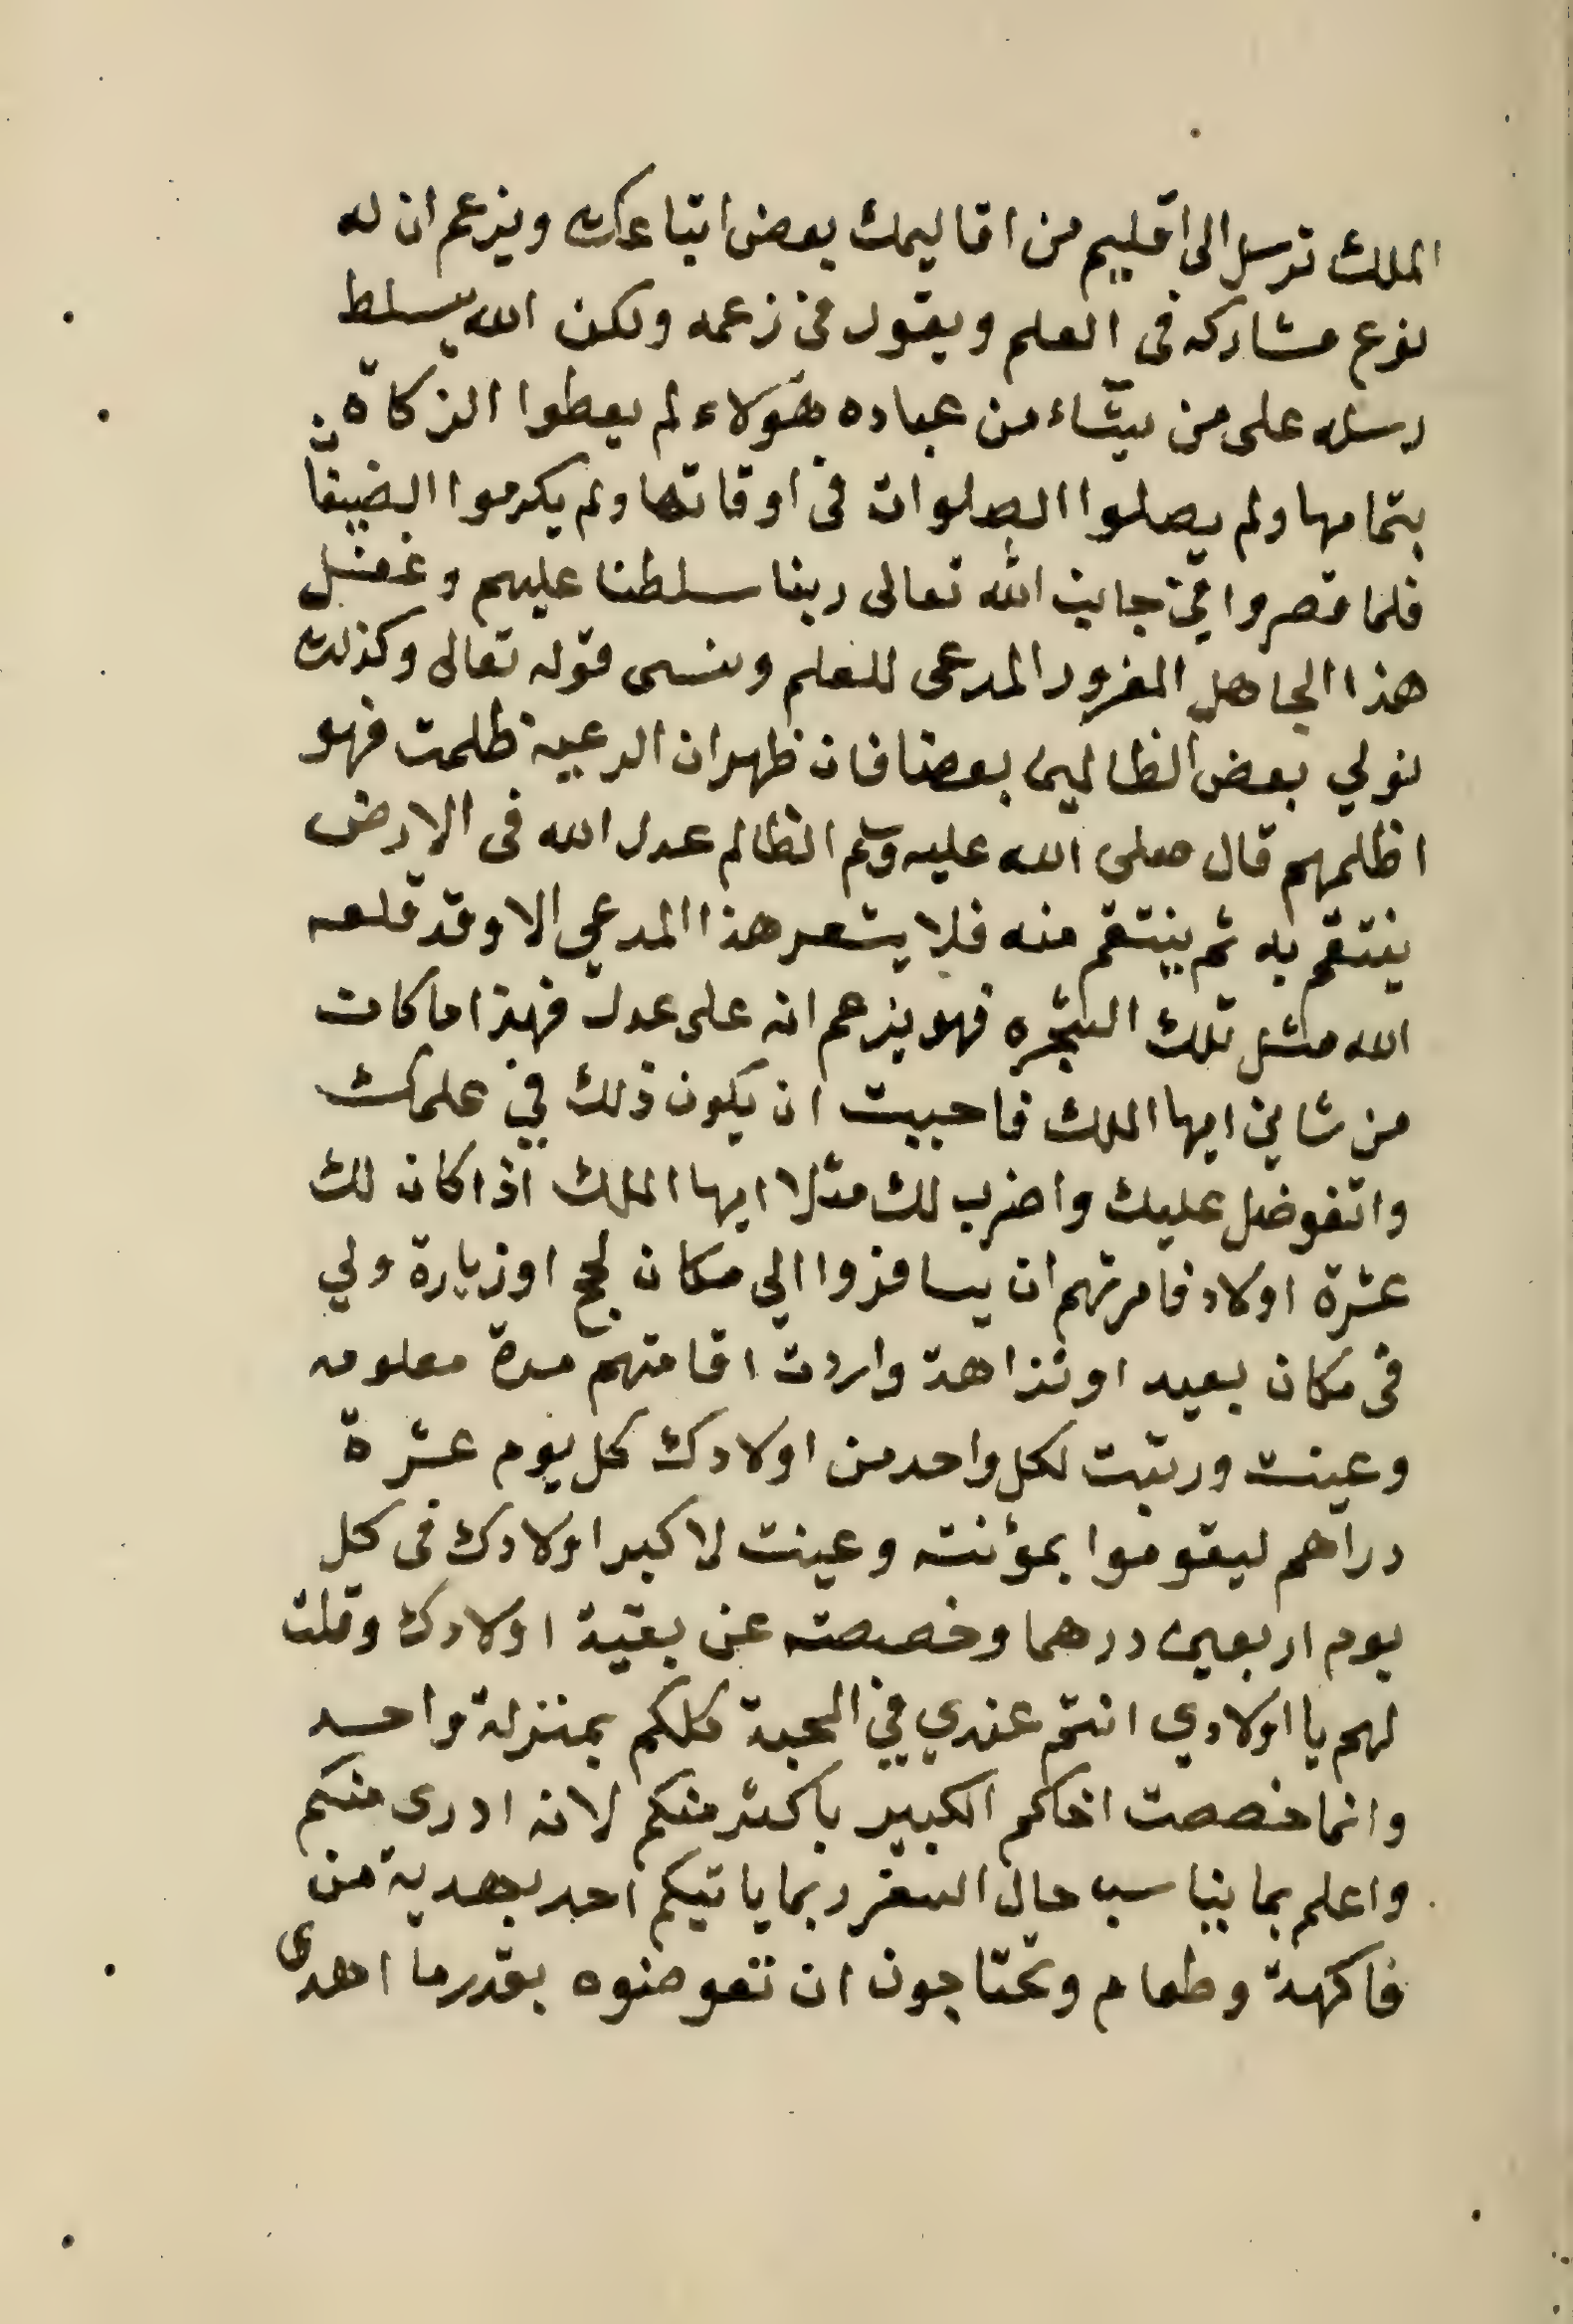 الملك ترسل الى اقليم من اقاليمك بعض اتباعك ويزعم ان له
نوع مشاركه فى العلم ويقول فى زعمه ولكن الله يسلط
رسله على من يشاء من عباده هؤلاء لم يعطوا الزكاة
بتمامها ولم يصلوا الصلوات فى اوقاتها ولم يكرموا الضيفان
فلما قصروا في جانب الله تعالى ربنا سلطنا عليهم وغفل
هذا الجاهل المغرور المدعى للعلم ونسى قوله تعالى وكذلك
نولي بعض الظالمين بعضا فان ظهر ان الرعيه ظلمت فهو
اظلمهم قال صلى الله عليه وسلم الظالم عدل الله فى الارض
ينتقم به ثم ينتقم منه فلا يشعر هذا المدعي الا وقد قلعه
الله مثل تلك الشجره فهو يزعم انه على عدل فهذا ما كان
من شاني ايها الملك فاحببت ان يكون ذلك في علمك
واتفوضل عليك واضرب لك مثلا ايها الملك اذا كان لك
عشرة اولاد فامرتهم ان يسافروا الي مكان لحج او زيارة ولي
فى مكان بعيد او نزاهة واردت اقامتهم مدة معلومه
وعينت ورتبت لكل واحد من اولادك كل يوم عشرة
دراهم ليقوموا بمؤنته وعينت لاكبر اولادك فى كل
يوم اربعين درهما وخصصته عن بقية اولادك وقلت
لهم يا اولادي انتم عندي في المحبة كلكم بمنزلة واحد
وانما خصصت اخاكم الكبير باكثر منكم لانه ادرى منكم
واعلم بما يناسب حال السفر ربما ياتيكم احد بهدية من
فاكهة وطعام وتحتاجون ان تعوضوه بقدر ما اهدى